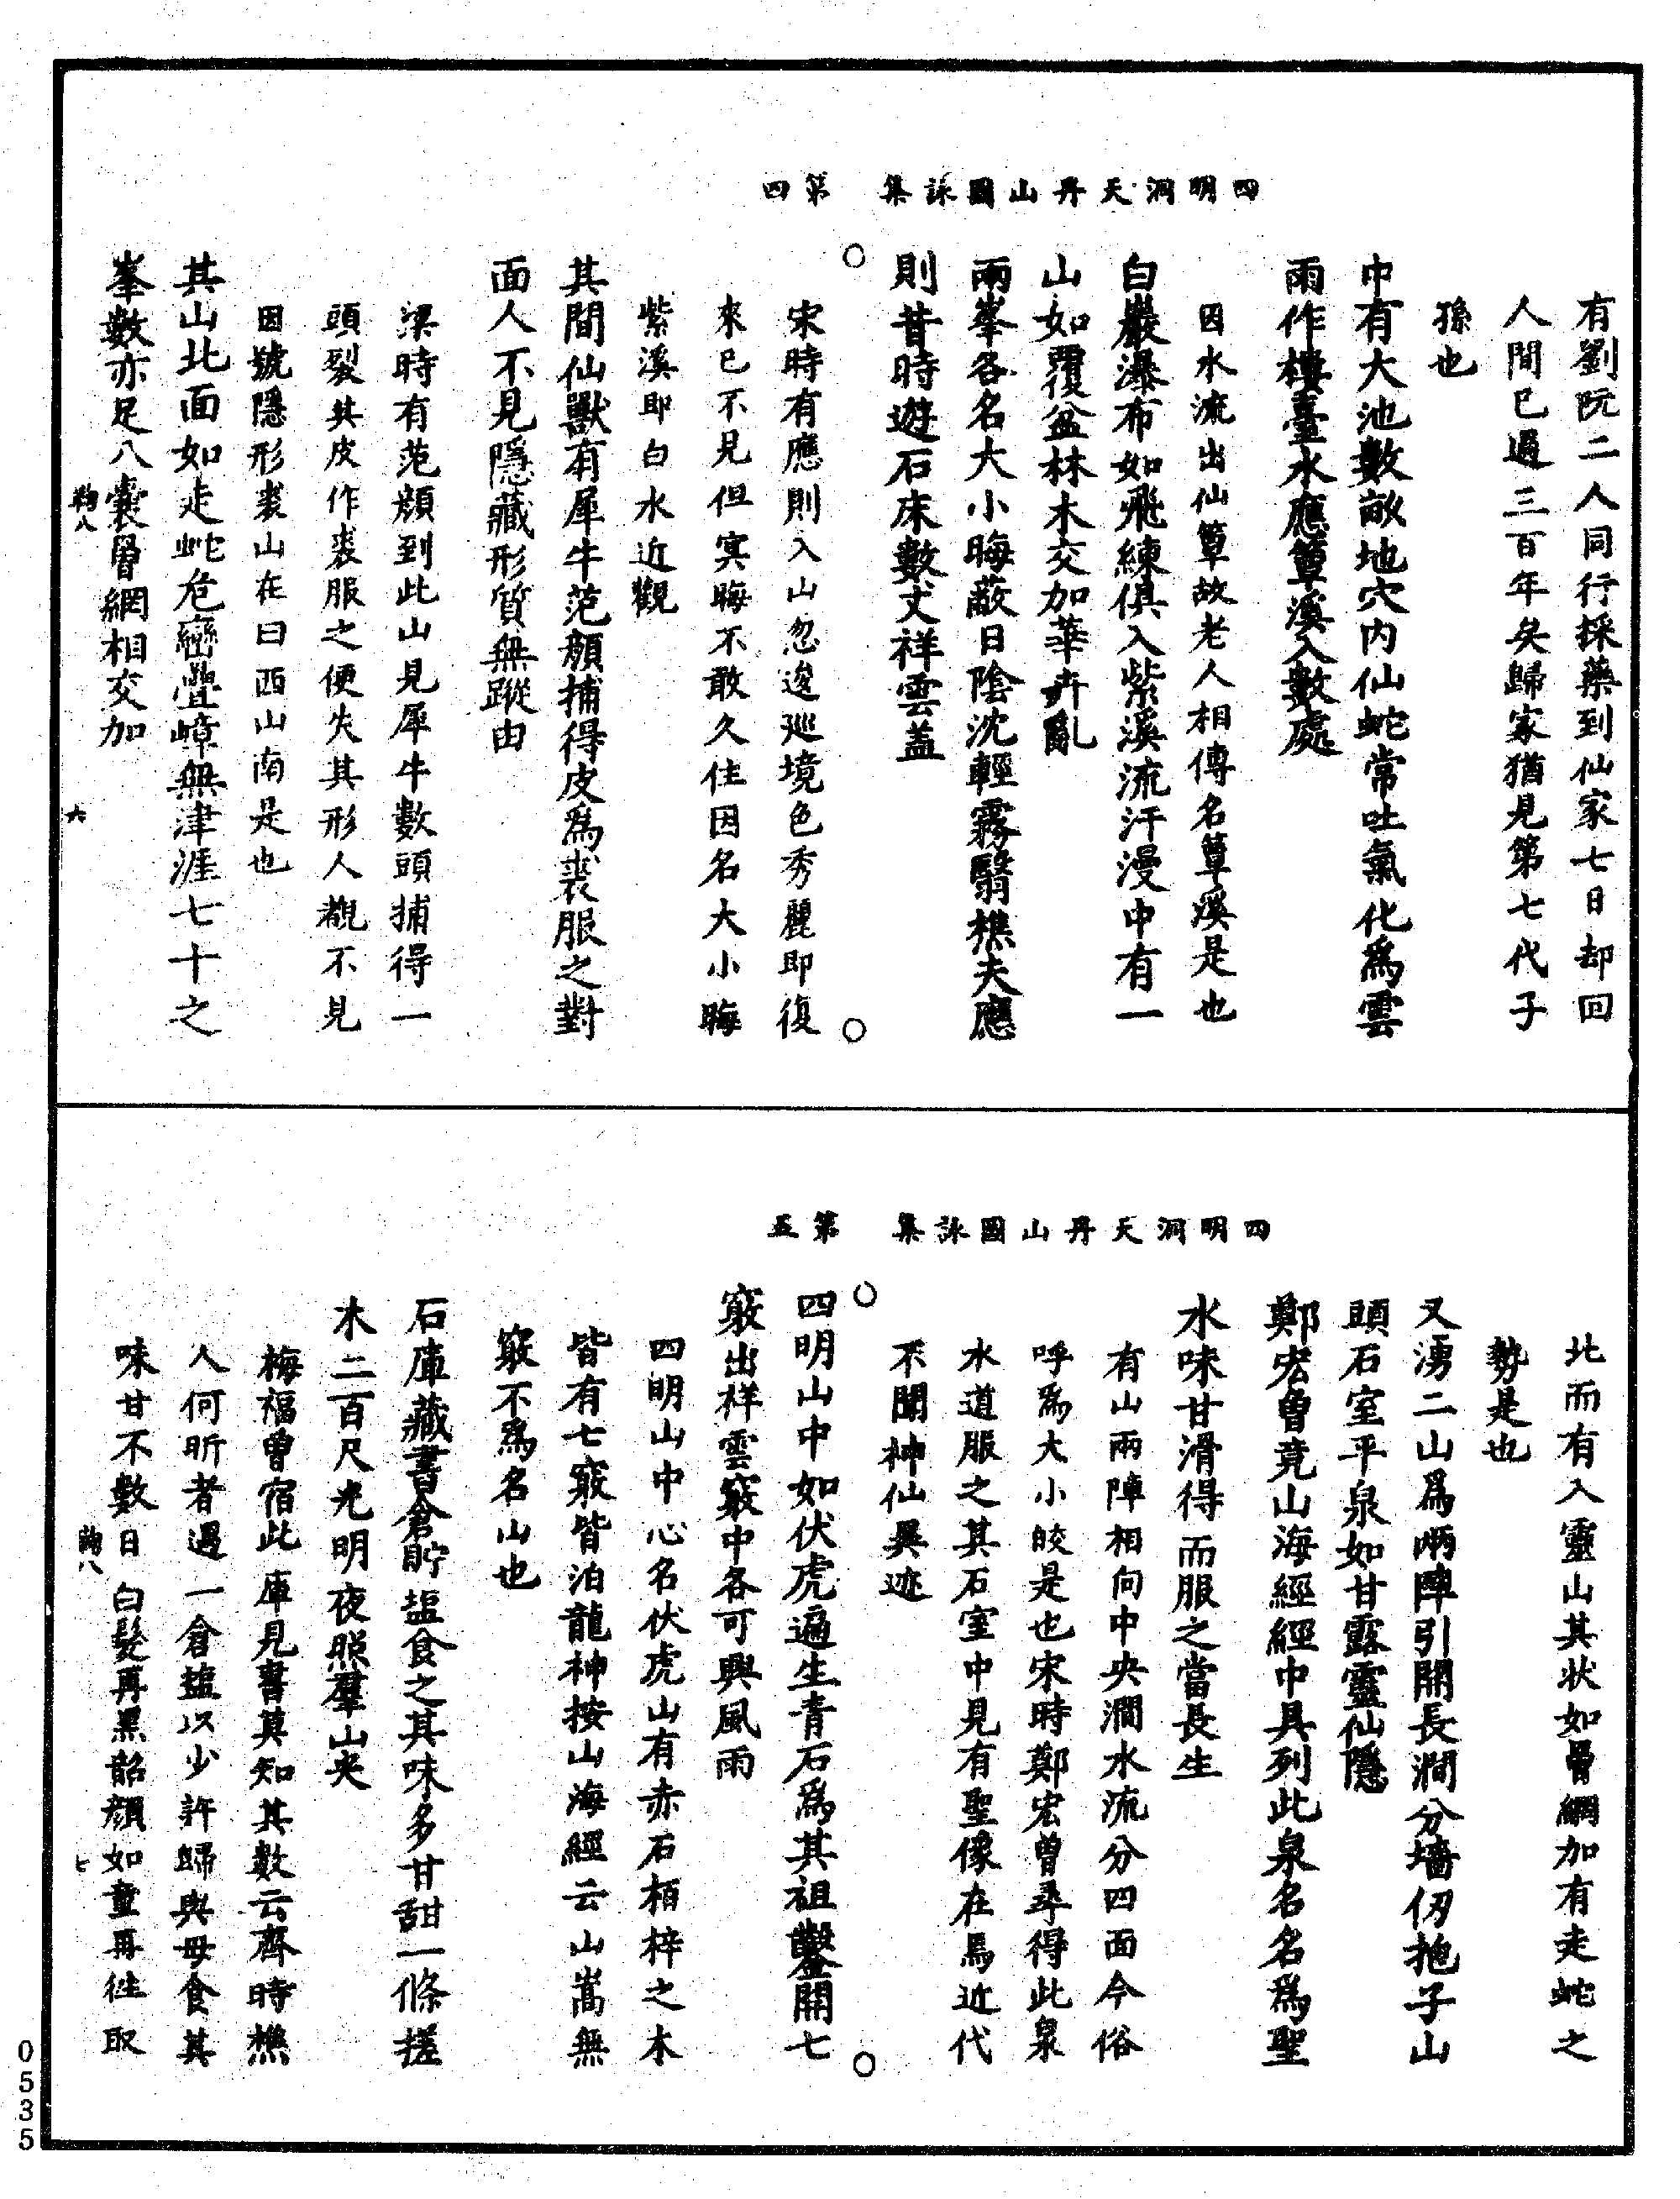 四明洞天丹山圖詠集 第四
有劉阮二人同行採藥到仙家七日却回
人間已過三百年矣歸家猶見第七代子
孫也
中有大池數畝地穴內仙蛇常吐氣化爲雲
雨作樓臺水應簟溪入數處
因水流出仙簟故老人相傳名簟溪是也
白巖瀑布如飛練俱入紫溪流汗漫中有一
山如覆盆林木交加華卉亂
兩峯各名大小晦蔽日陰沈輕霧翳樵夫應
則昔時遊石床數丈祥雲蓋
宋時有應則入山忽逡巡境色秀麗即復
來已不見但冥晦不敢久住因名大小晦
紫溪即白水近觀
其間仙獸有犀牛范顔捕得皮爲裘服之對
面人不見隱藏形質無蹤由
梁時有范顔到此山見犀牛數頭捕得一
頭裂其皮作裘服之便失其形人覩不見
因號隱形裘山在曰西山南是也
其山北面如走蛇危巒疊嶂無津涯七十之
峯數亦足八囊罾網相交加
鞠八
六
四明洞天丹山圖詠集 第五
北而有入靈山其狀如罾網加有走蛇之
勢是也
又湧二山爲兩陣引開長澗分墻仞抱子山
頭石室平泉如甘露靈仙隱
鄭宏曾竟山海經經中具列此泉名名爲聖
水味甘滑得而服之當長生
有山兩陣相向中央澗水流分四面今俗
呼爲大小皎是也宋時鄭宏曾尋得此泉
水道服之其石室中見有聖像在焉近代
不聞神仙異迹
四明山中如伏虎遍生青石爲其祖鑿開七
竅出祥雲竅中各可興風雨
四明山中心名伏虎山有赤石栢梓之木
皆有七竅皆泊龍神按山海經云山嵩無
竅不爲名山也
石庫藏書倉貯塩食之其味多甘甜一條搓
木二百尺光明夜照羣山夾
梅福曾宿此庫見書莫知其數云齊時樵
人何昕者過一倉塩以少許歸與母食其
味甘不數日白髮再黑韶顔如童再徃取
鞠八
七
0535